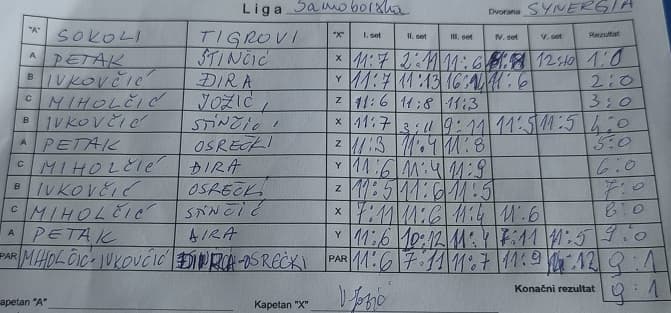 Liga Samoborska Dvorana SYNERGIA
"A" SOKOLI TIGROVI "X" I. set II. set III. set IV. set V. set Rezultat
A PETAK STINČIĆ X 11:7 2:11 11:6 12:10 1:0
B IVKOVČIĆ ĐIRA Y 11:7 11:13 16:14 11:6 2:0
C MIHOLČIĆ JOZIĆ Z 11:6 11:8 11:3 3:0
B IVKOVČIĆ STINČIĆ X 11:7 3:11 9:11 11:5 11:5 4:0
A PETAK OSREČKI Z 11:3 11:4 11:8 5:0
C MIHOLČIĆ ĐIRA Y 11:6 11:4 11:9 6:0
B IVKOVČIĆ OSREČKI Z 11:5 11:6 11:5 7:0
C MIHOLČIĆ STINČIĆ X 7:11 11:6 11:4 11:6 8:0
A PETAK ĐIRA Y 11:6 10:12 11:4 7:11 11:5 9:0
PAR MIHOLČIĆ-IVKOVČIĆ OSREČKI PAR 11:6 7:11 11:7 11:9 9:1
Konačni rezultat 9:1
Kapetan "A" Kapetan "X"